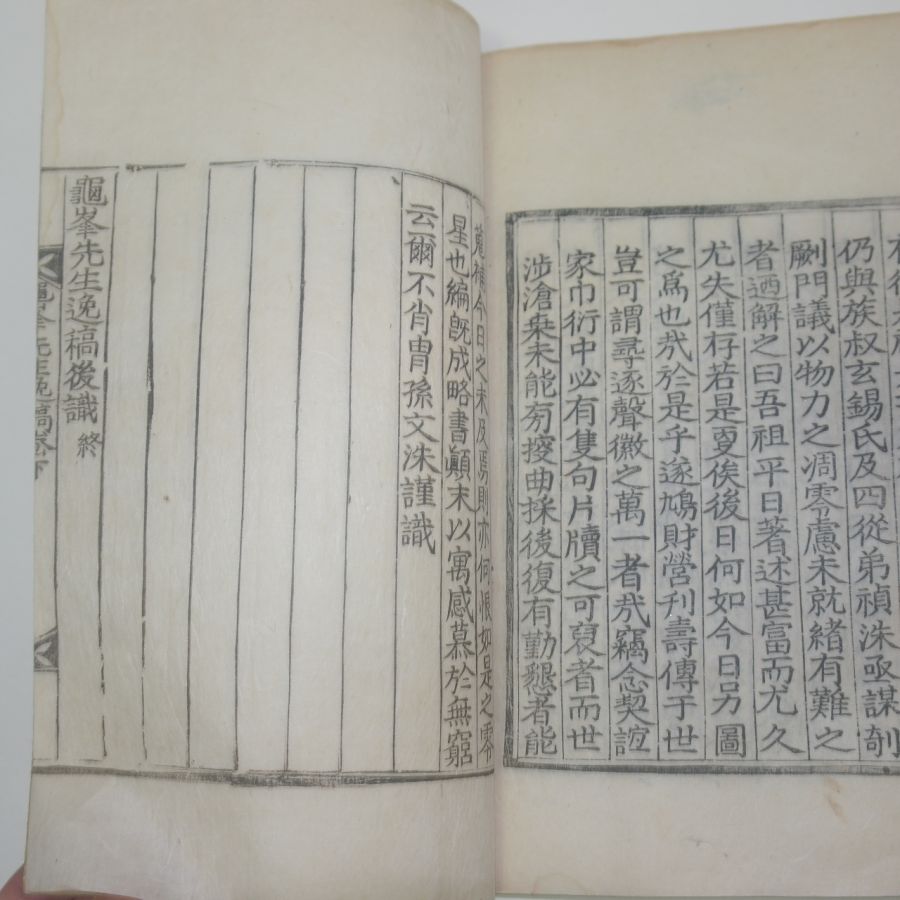 仍與族叔玄錫氏及四從弟禎洙亟謀剞
劂門議以物力之凋零慮未就緒有難之
者迺解之曰吾祖平日著述甚富而尤久
尤失僅存若是夏俟後日何如今日另圖
之爲也㢤於是乎遂鳩財營刋壽傳于世
豈可謂尋逐聲徽之萬一者㢤竊念契誼
家巾衍中必有隻句片牘之可裒者而世
涉滄桒未能旁搜曲採後復有勤懇者能
蒐補今日之未及焉則亦何恨如是之零
星也編旣成略書顚末以寓感慕於無窮
云爾不肖胄孫文洙謹識
龜峯先生逸稿後識 終